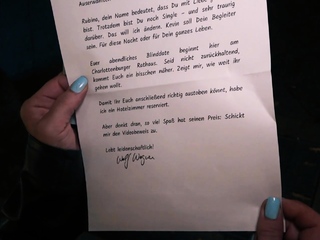 Rubina, dein Name bedeutet, dass Du mit Liebe
bist. Trotzdem bist Du noch Single - und sehr traurig
darüber. Das will ich ändern. Kevin soll Dein Begleiter
sein. Für diese Nacht oder für Dein ganzes Leben.
Euer abendliches Blinddate beginnt hier am
Charlottenburger Rathaus. Seid nicht zurückhaltend,
kommt Euch ein bisschen näher. Zeigt mir, wie weit ihr
gehen wollt.
Damit Ihr Euch anschließend richtig austoben könnt, habe
ich ein Hotelzimmer reserviert.
Aber denkt dran, so viel Spaß hat seinen Preis: Schickt
mir den Videobeweis zu.
Lebt leidenschaftlich!